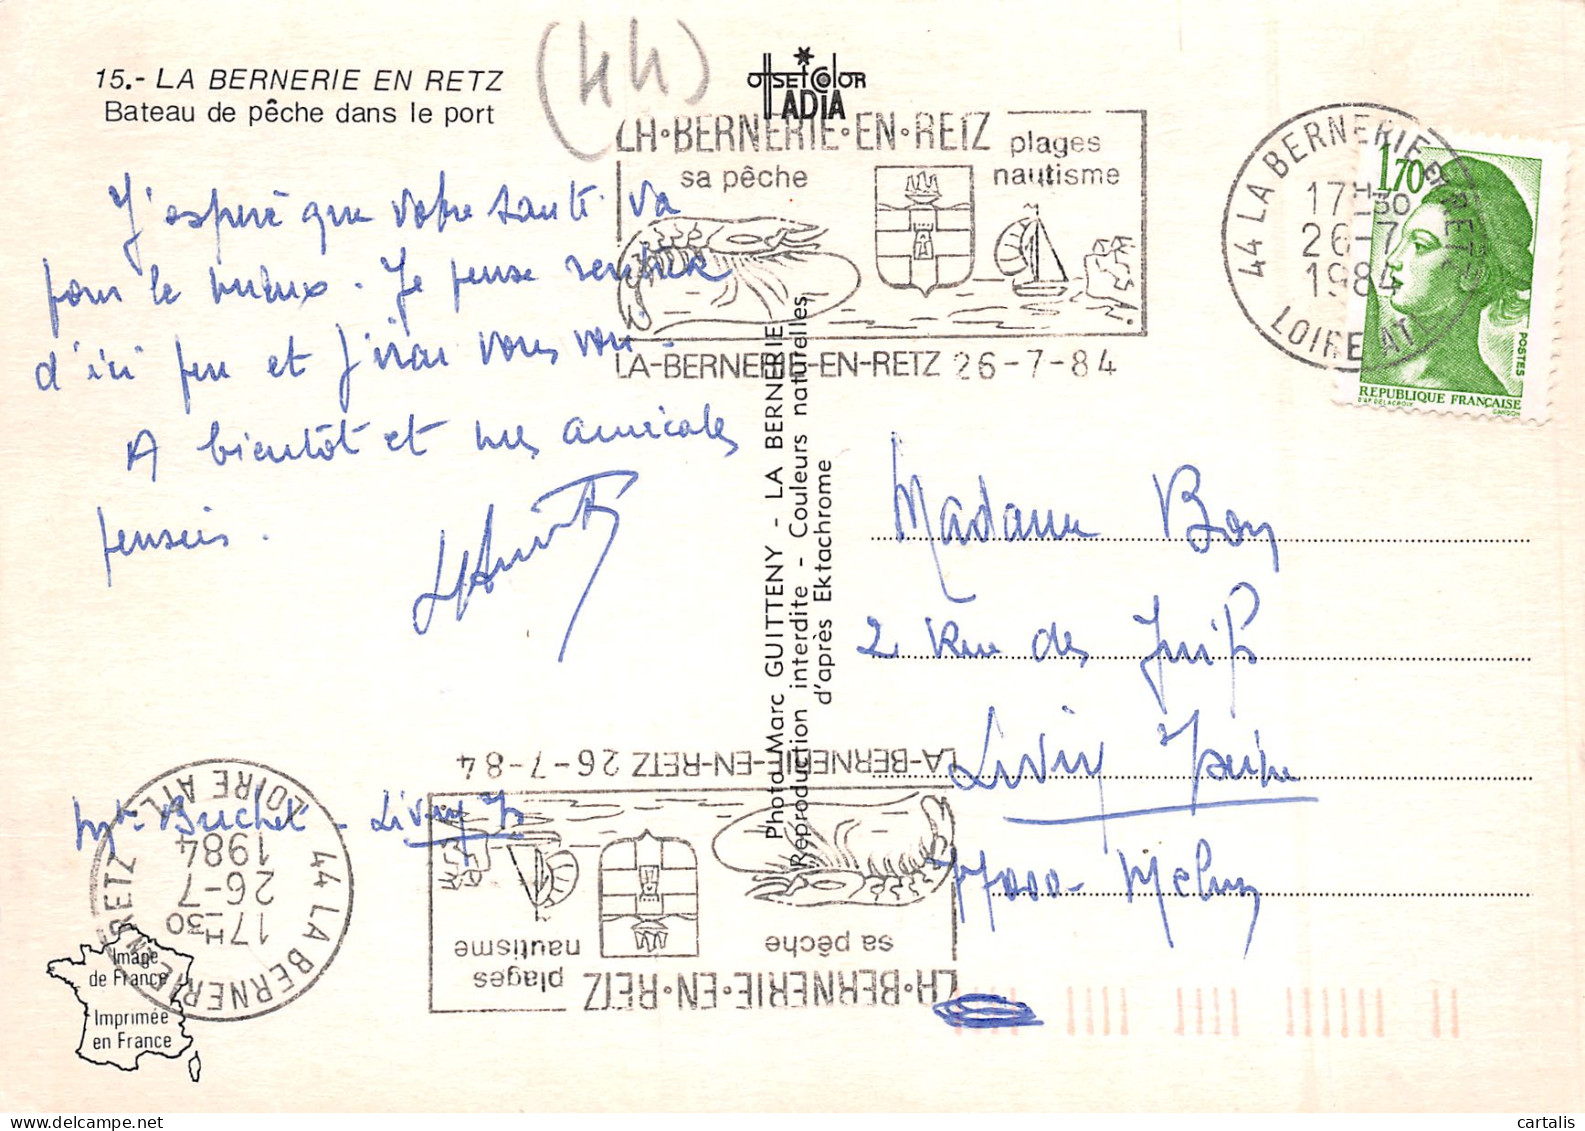 15.- LA BERNERIE EN RETZ
Bateau de pêche dans le port
(44)
OffsetColor
ADIA
LA·BERNERIE·EN·RETZ
plages
nautisme
sa pêche
LA-BERNERIE-EN-RETZ 26-7-84
44 LA BERNERIE EN RETZ
17H30
26-7
1984
LOIRE ATL
1,70
POSTES
REPUBLIQUE FRANÇAISE
D'AP. DELACROIX
GANDON
J'espère que votre santé va
pour le mieux. Je pense rentrer
d'ici peu et j'irai vous voir.
A bientôt et mes amicales
pensées.
Mme Buchet - Livry
Photo Marc GUITTENY - LA BERNERIE
Reproduction interdite - Couleurs naturelles
d'après Ektachrome
Madame Bon
2 Rue des Juifs
Livry Seine
77000 - Melun
LA-BERNERIE-EN-RETZ 26-7-84
LA·BERNERIE·EN·RETZ
sa pêche
plages
nautisme
44 LA BERNERIE EN RETZ
17H30
26-7
1984
LOIRE ATL
Image
de France
Imprimée
en France
cartalis